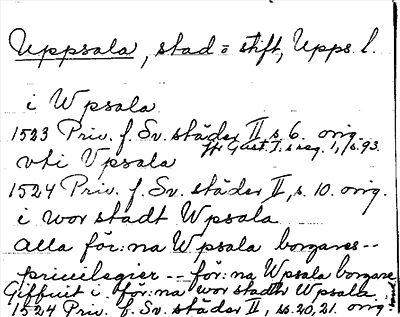 Uppsala, stad = stift, Upps. l.
i Wpsala
1523 Priv. f. Sv. städer II s. 6. orig.
jfr Gust. I:s reg. 1, s. 93.
vti Vpsala
1524 Priv. f. Sv. städer II, s. 10. orig.
i wor stadt Wpsala
alla för:na Wpsala borgares --
priuilegier -- för:na Wpsala borgare
Giffuit i för:na wor stadh Wpsala
1524 Priv. f. Sv. städer II, ss. 20, 21. orig.